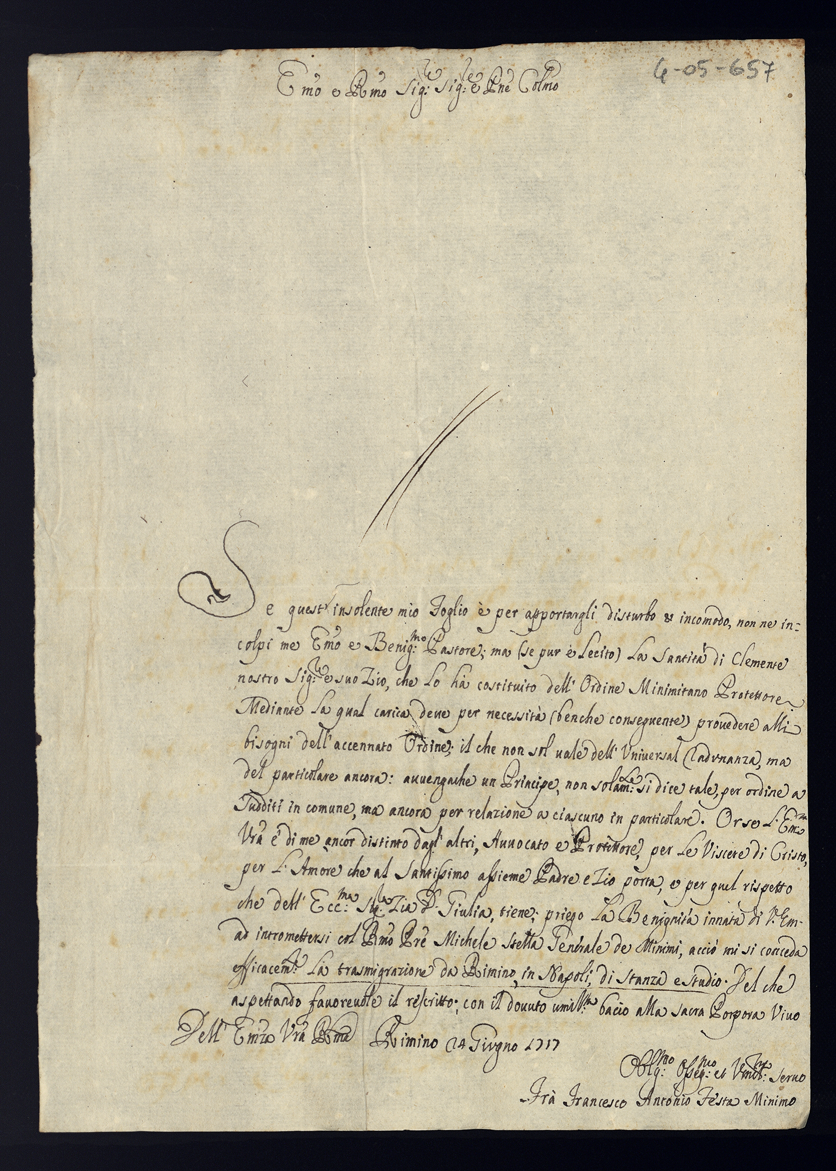 6-05-657
Emo e Rmo Sig:re Sig:re e Pne Colmo
Se quest' insolente mio Foglio è per apportargli disturbo & incomodo, non ne in:
colpi me Emo e Benig:mo Pastore; ma (se pur è Lecito) La Santità di Clemente
nostro Sig:re e suo Zio, che Lo hà costituito dell' Ordine Minimitano Protettore.
Mediante La qual carica deve per necessità (benche conseguente) provedere alli
bisogni dell' accennato Ordine; il che non sol vale dell' Universal Cadunanza, ma
del particolare ancora: avvengache un Principe, non solam:te si dice tale, per ordine a
Sudditi in comune, ma ancora per relazione a ciascuno in particolare. Or se L' Emza
Vrã è di me ancor distinto dagl' altri, Avvocato e Protettore, per Le Viscere di Cristo,
per L' Amore che al Santissimo assieme Padre e Zio porta, e per quel rispetto
che dell' Ecc:ma Sig:ra Zia D. Giulia, tiene; priego La Benignità innata di V. Em-
ad intromettersi col Rmo Prẽ Michele Stella Genẽrale de Minimi, acciò mi si conceda
efficacem:te La trasmigrazione da Rimino, in Napoli, di Stanza e studio. Del che
aspettando favorevole il rescritto; con il dovuto umil:mo bacio alla Sacra Porpora Vivo
Dell' Emza Vrã Rma Rimino 14 Giugno 1717
Oblig:mo Osseq:mo et Umil:mo Servo
Frà Francesco Antonio Testa Minimo